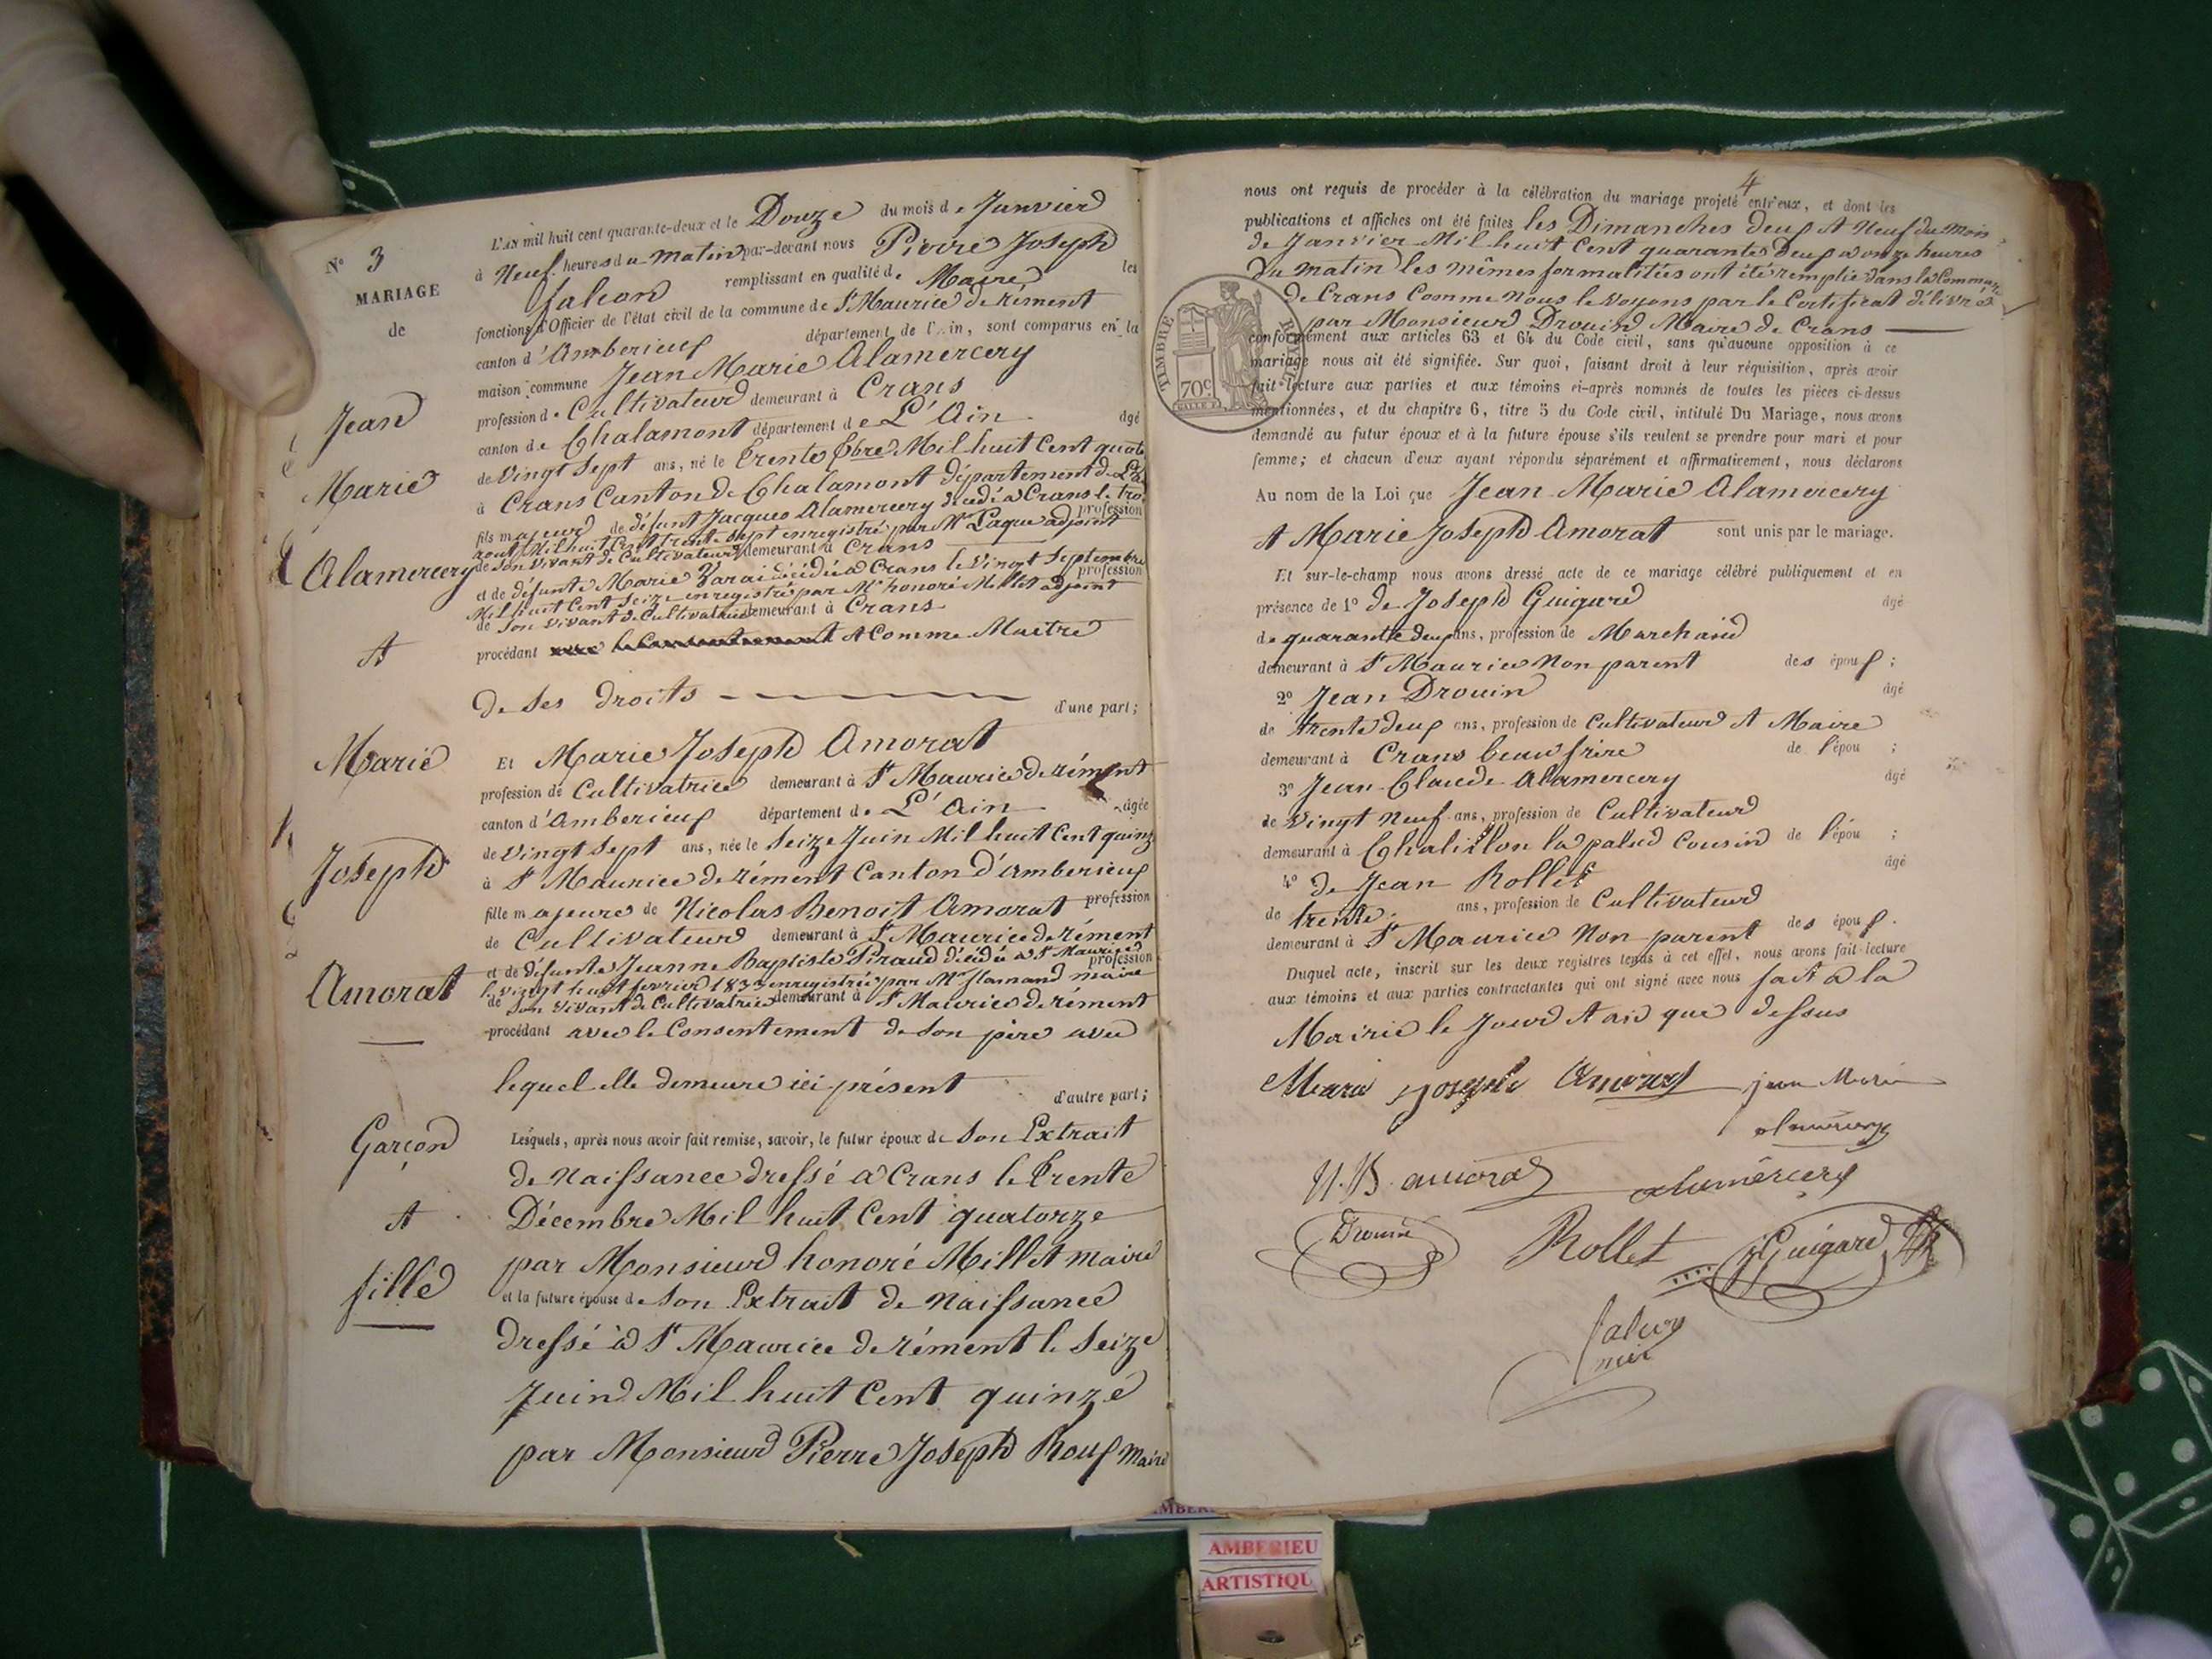 N° 3
MARIAGE
de
Jean
Marie
Alamercery
et
Marie
Joseph
Amorat
Garçon
et
fille
L'An mil huit cent quarante-deux et le Douze du mois de Janvier
à Neuf heures du matin par-devant nous Pierre Joseph
falcon remplissant en qualité de Maire les
fonctions d'Officier de l'état civil de la commune de St Maurice de rément
canton d'Amberieux département de l'Ain, sont comparus en la
maison commune Jean Marie Alamercery
profession de Cultivateur demeurant à Crans
canton de Chalamont département de L'Ain âgé
de Vingt Sept ans, né le trente Xbre Mil huit Cent quat
à Crans Canton de Chalamont Département de L'Ai
fils majeur de défunt Jacques Alamercery décédé à Crans le tro
profession
aout Mil huit Cent trente Sept enregistré par Mr Paque adjoint
de Son vivant de Cultivateur demeurant à Crans
et de défunte Marie décédée à Crans le Vingt Septembre
profession
Mil huit Cent Seize enregistré par Mr honoré Millet adjoint
de Son vivant de Cultivatrice demeurant à Crans
procédant et Comme Maitre
de Ses droits d'une part;
Et Marie Joseph Amorat
profession de Cultivatrice demeurant à St Maurice de rément
canton d'Amberieux département de L'Ain âgée
de Vingt Sept ans, née le Seize Juin Mil huit Cent quinz
à St Maurice de rément Canton d'Amberieux
fille majeure de Nicolas Benoit Amorat profession
de Cultivateur demeurant à St Maurice de rément
et de défunte Jeanne Baptiste Piraud décédée à St Maurice
profession
le vingt huit fevrier 1833 enregistrée par Mr flamand maire
de Son vivant de Cultivatrice demeurant à St Maurice de rément
procédant avec le Consentement de Son père avec
lequel elle demeure ici présent d'autre part;
Lesquels, après nous avoir fait remise, savoir, le futur époux de Son Extrait
de Naissance dressé à Crans le trente
Décembre Mil huit Cent quatorze
par Monsieur honoré Millet maire
et la future épouse de Son Extrait de Naissance
dressé à St Maurice de rément le Seize
Juin Mil huit Cent quinze
par Monsieur Pierre Joseph Roux Maire
4
nous ont requis de procéder à la célébration du mariage projeté entr'eux, et dont les
publications et affiches ont été faites les Dimanches deux et Neuf du mois
de Janvier Mil huit Cent quarante deux à onze heures
du matin les mêmes formalitées ont été remplie dans la Commune
de Crans Comme Nous le voyons par le Certificat délivré
par Monsieur Drouin Maire de Crans
conformément aux articles 63 et 64 du Code civil, sans qu'aucune opposition à ce
mariage nous ait été signifiée. Sur quoi, faisant droit à leur réquisition, après avoir
fait lecture aux parties et aux témoins ci-après nommés de toutes les pièces ci-dessus
mentionnées, et du chapitre 6, titre 5 du Code civil, intitulé Du Mariage, nous avons
demandé au futur époux et à la future épouse s'ils veulent se prendre pour mari et pour
femme; et chacun d'eux ayant répondu séparément et affirmativement, nous déclarons
Au nom de la Loi que Jean Marie Alamercery
et Marie Joseph Amorat sont unis par le mariage.
Et sur-le-champ nous avons dressé acte de ce mariage célébré publiquement et en
présence de 1° de Joseph Guigard âgé
de quarante deux ans, profession de Marchand
demeurant à St Maurice Non parent des époux;
2° Jean Drouin âgé
de trente deux ans, profession de Cultivateur et Maire
demeurant à Crans beau frère de l'épou ;
3° Jean Claude Alamercery âgé
de Vingt Neuf ans, profession de Cultivateur
demeurant à Chatillon la palud Cousin de l'épou ;
4° de Jean Rollet âgé
de trente ans, profession de Cultivateur
demeurant à St Maurice Non parent des époux.
Duquel acte, inscrit sur les deux registres tenus à cet effet, nous avons fait lecture
aux témoins et aux parties contractantes qui ont signé avec nous fait à la
Mairie le Jour et an que dessus
TIMBRE ROYAL
70c
Marie Joseph Amorat jean Marie
alamercery
N.B. amorat alamercery
Drouin Rollet Guigard
falcon
AMBERIEU
ARTISTIQU